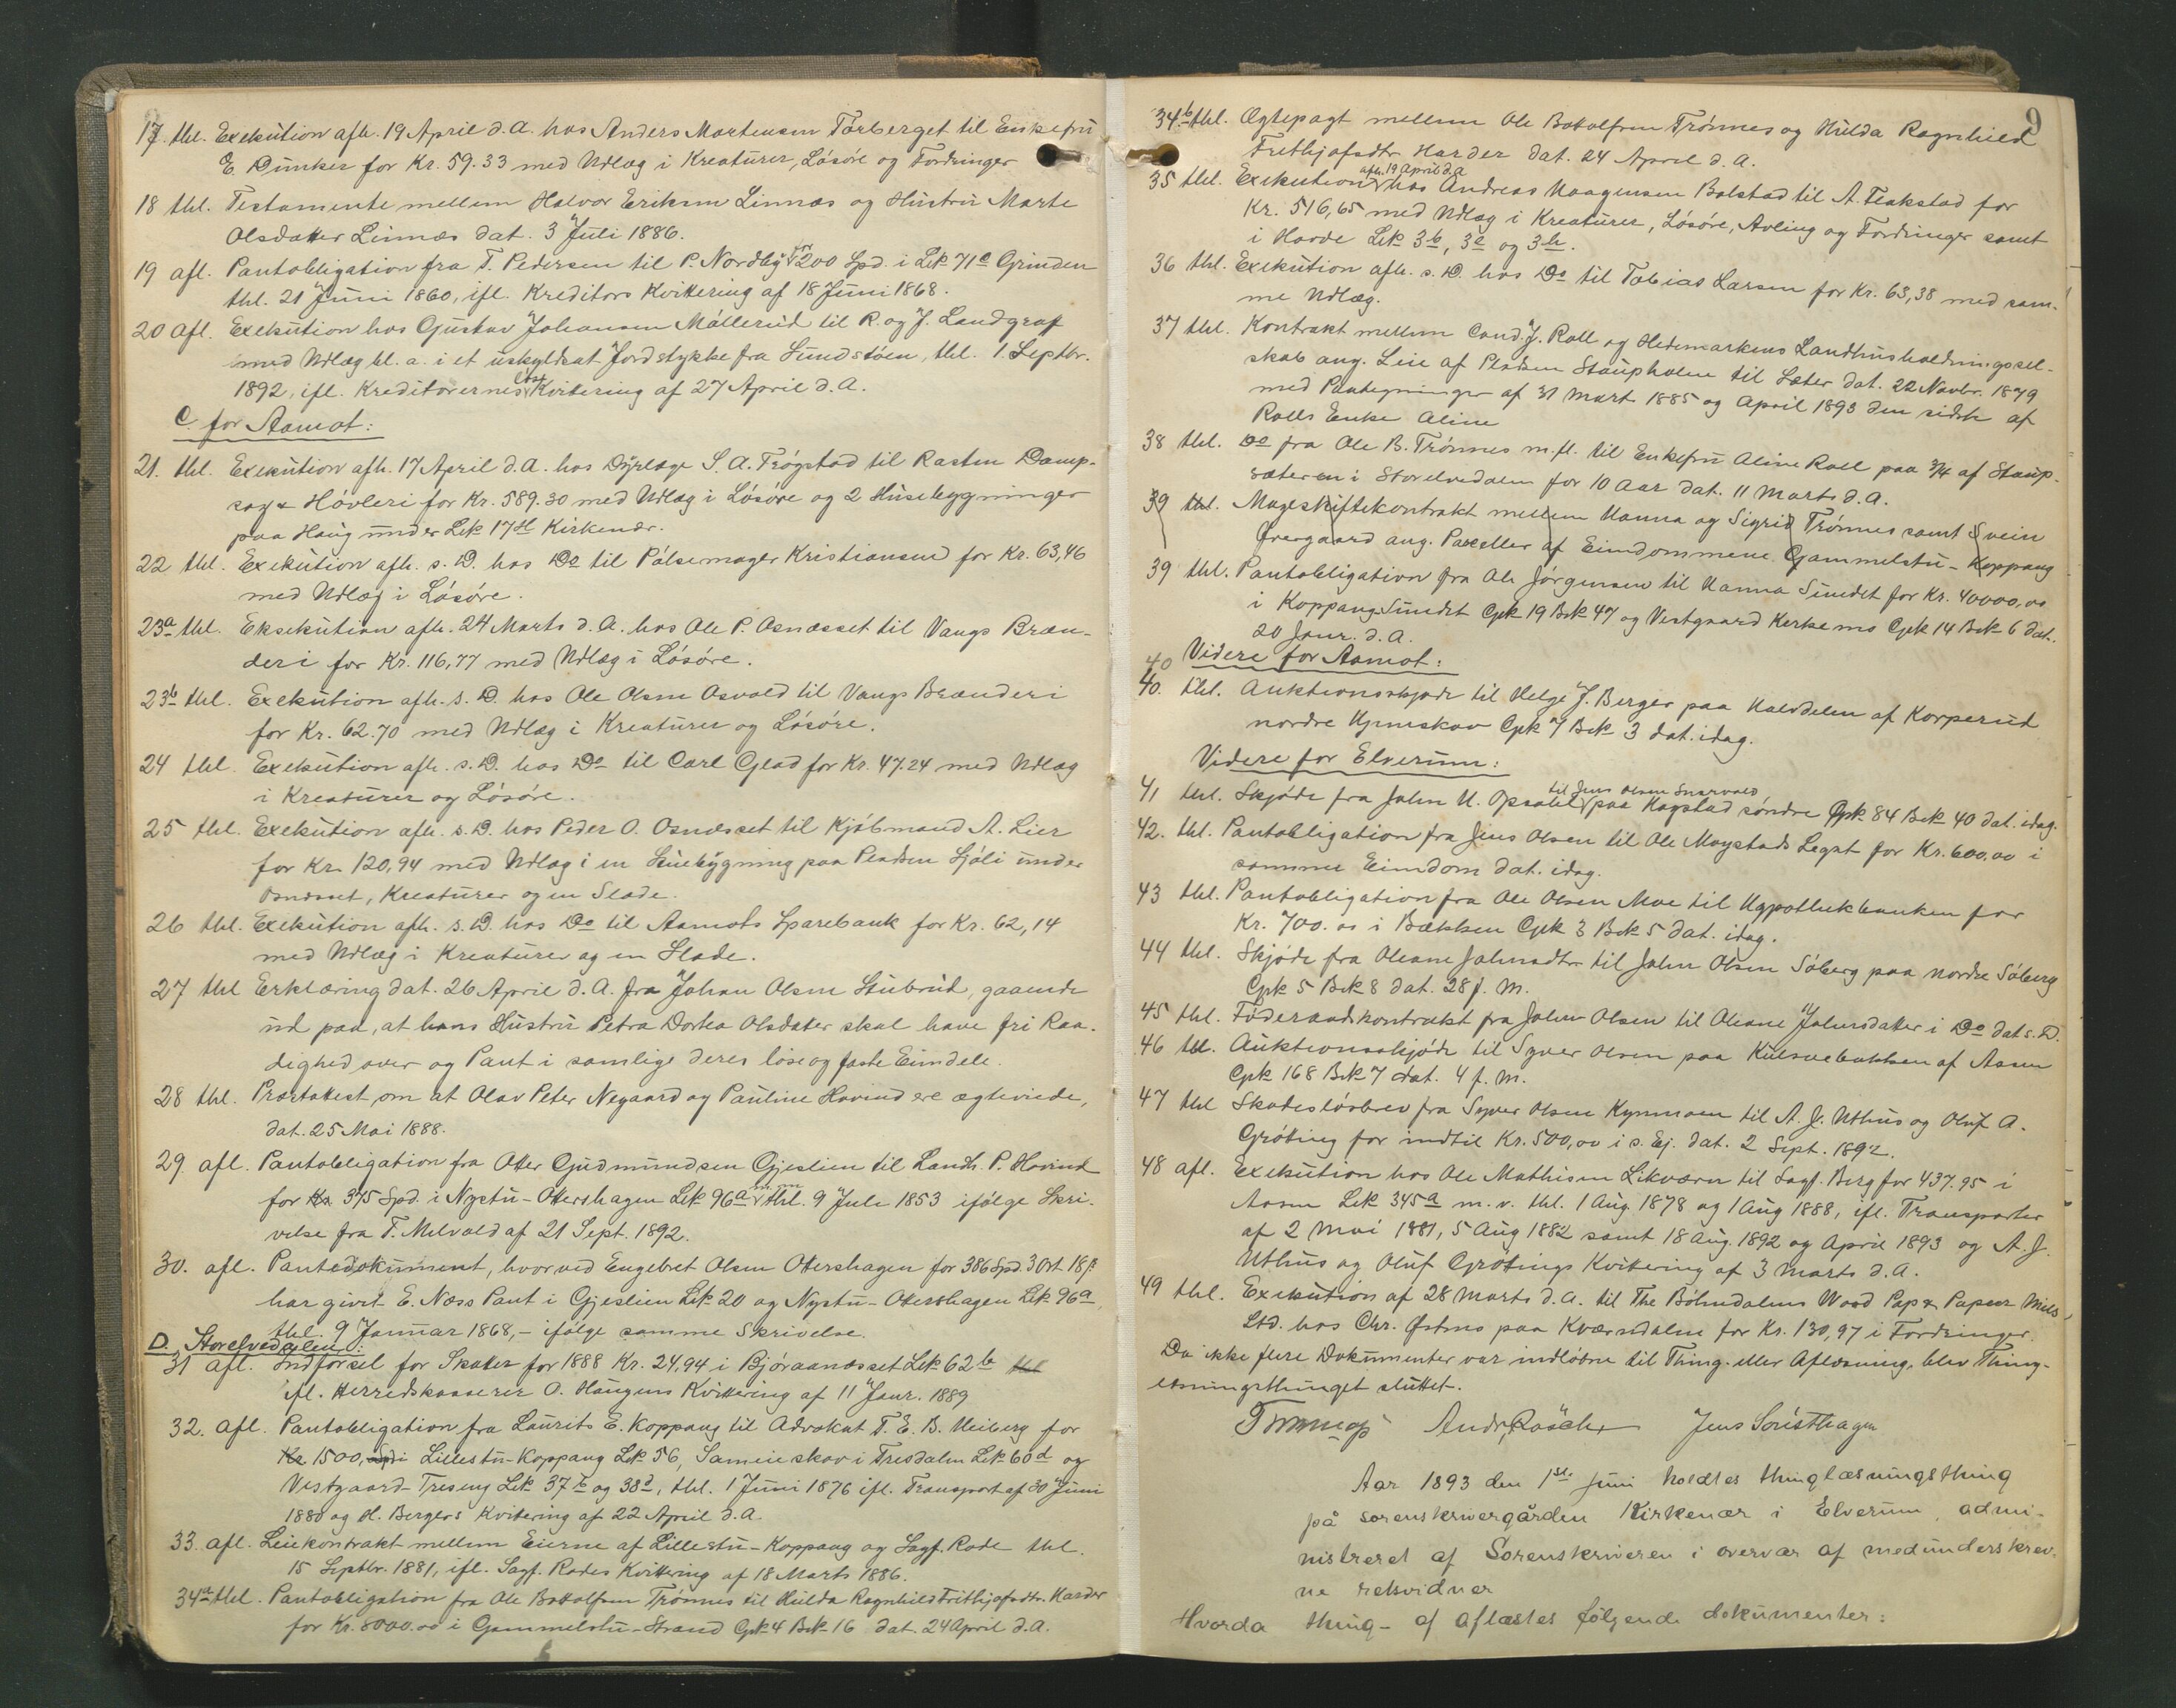 17. thl. Exekution afh. 19 April d. A. hos Anders Mortensen Torberget til Enkefru
E. Dunker for Kr. 59.33 med Udlæg i Kreaturer, Løsøre og Fordringer
18 thl. Testamente mellem Halvor Eriksen Linnæs og Hustru Marte
Olsdatter Linnæs dat. 3 Juli 1886.
19 afl. Pantobligation fra T. Pedersen til P. Nordby for 200 Spd. i Lk 71c Grinden
thl. 21 Juni 1860, ifl. Kreditors Kvittering af 18 Juni 1868.
20 afl. Exekution hos Gustav Johansen Møllerud til R. og J. Landgraf
med Udlæg bl. a. i et uskyldsat Jordstykke fra Sundstøen, thl. 1. Septbr.
1892, ifl. Kreditorernes Kvittering af 27 April d. A.
C. for Aamot:
21. thl. Exekution afh. 17 April d. A. hos Dyrlæge S. A. Trøgstad til Rasten Damp-
sag & Høvleri for Kr. 589.30 med Udlæg i Løsøre og 2 Husebygninger
paa Haug under Lk 17H Kirkenær.
22 thl. Exekution afh. s. D. hos Do til Pølsemager Kristiansen for Kr. 63,46
med Udlæg i Løsøre.
23a thl. Eksekution afh. 24 Marts d. A. hos Ole P. Osnæsset til Vangs Bræn-
deri for Kr. 116,77 med Udlæg i Løsøre.
23b thl. Exekution afh. s. D. hos Ole Olsen Osvold til Vangs Brænderi
for Kr. 62.70 med Udlæg i Kreaturer og Løsøre.
24 thl. Exekution afh. s. D. hos Do til Carl Glad for Kr. 47.24 med Udlæg
i Kreaturer og Løsøre.
25 thl. Exekution afh. s. D. hos Peder O. Osnæsset til Kjøbmand A. Lier
for Kr. 120,94 med Udlæg i en Stuebygning paa Pladsen Sjøli under
Osnæsset, Kreaturer og en Slæde.
26 thl. Exekution afh. s. D. hos Do til Aamots Sparebank for Kr. 62,14
med Udlæg i Kreaturer og en Slæde.
27 thl Erklæring dat. 26 April d. A. fra Johan Olsen Stubrud, gaaende
ud paa, at hans Hustru Petra Dortea Olsdatter skal have fri Raa-
dighed over og Pant i samtlige deres løse og faste Eiendele.
28 thl. Præstattest om at Olav Peter Nygaard og Pauline Hovind ere ægteviede,
dat. 25 Mai 1888.
29 afl. Pantobligation fra Otter Gudmundsen Gjeslien til Landh. P. Hovind
for Kr. 375 Spd. i Nystu-Ottershagen Lk 96a m. m. thl. 9 Juli 1853 ifølge Skri-
velse fra T. Melvold af 21 Sept. 1892.
30. afl. Pantedokument, hvorved Engebret Olsen Ottershagen for 386 Spd. 3 Ort 18 ß
har givet E. Næss Pant i Gjeslien Lk 20 og Nystu-Ottershagen Lk 96a,
thl. 9 Januar 1868, - ifølge samme Skrivelse.
D. Storelvedalen:
31 afl. Indførsel for Skatter for 1888 Kr. 24,94 i Bjøraanæsset Lk 62b thl
ifl. Herredskasserer O. Haugens Kvittering af 11 Janr. 1889
32. afl. Pantobligation fra Laurits E. Koppang til Advokat T. E. B. Heiberg for
Kr. 1500, Spd i Lillestu-Koppang Lk 56, Sameieskov i Tresdalen Lk 60d og
Vestgaard-Treseng Lk 37b og 38d, thl. 1 Juni 1876 ifl. Transport af 30 Juni
1880 og H. Bergers Kvittering af 22 April d. A.
33. afl. Leiekontrakt mellem Eierne af Lillestu-Koppang og Sagf. Rode thl.
15 Septbr. 1881, ifl. Sagf. Rodes Kvittering af 18 Marts 1886.
34a thl. Pantobligation fra Ole Bottolfsen Trønnes til Hulda Ragnhild Frithjofsdtr. Harder
for Kr. 8000.00 i Gammelstu-Strand Gk 4 Bk 16 dat. 24 April d. A.
9
34b thl. Ægtepagt mellem Ole Bottolfsen Trønnes og Hulda Ragnhild
Frithjofsdtr. Harder dat. 24 April d. A.
35 thl. Exekution afh. 19 April d. A. hos Andreas Haagensen Bolstad til A. Flakstad for
Kr. 516,65 med Udlæg i Kreaturer, Løsøre, Avling og Fordringer samt
i Horde Lk 3b, 3e og 3h.
36 thl. Exekution afh. s. D. hos Do til Tobias Larsen for Kr. 63,38 med sam-
me Udlæg.
37 thl. Kontrakt mellem Cand. J. Roll og Hedemarkens Landhusholdningssel-
skab ang. Leie af Pladsen Staupholen til Sæter dat. 22 Novbr. 1879
med Paategninger af 31 Mart 1885 og April 1893 den sidste af
Rolls Enke Aline
38 thl. Do fra Ole B. Trønnes m. fl. til Enkefru Aline Roll paa 3/4 af Staup-
sæteren i Storelvedalen for 10 Aar dat. 11 Marts d. A.
39 thl. Mageskiftekontrakt mellem Hanna og Sigrid Trønnes samt Svein
Øvergaard ang. Parceller af Eiendommene Gammelstu-Koppang
39 thl. Pantobligation fra Ole Jørgensen til Hanna Sundet for Kr. 40000,00
i Koppang-Sundet Gk 19 Bk 47 og Vestgaard Kirkemo Gk 14 Bk 6 dat.
20 Janr. d. A.
40 Videre for Aamot:
40. thl. Auktionsskjøde til Helge J. Berger paa Halvdelen af Korperud
nordre Hjemskov Gk 7 Bk 3 dat. idag.
Videre for Elverum:
41 thl. Skjøde fra John H. Opsahl til Jens Olsen Snarvold paa Hagstad søndre Gk 84 Bk 40 dat. idag.
42. thl. Pantobligation fra Jens Olsen til Ole Mogstads Legat for Kr. 600,00 i
samme Eiendom dat. idag.
43 thl. Pantobligation fra Ole Olsen Moe til Hypothekbanken for
Kr. 700.00 i Bækken Gk 3 Bk 5 dat. idag.
44 thl. Skjøde fra Oleane Johnsdtr til John Olsen Søberg paa nordre Søberg
Gk 5 Bk 8 dat. 28 f. M.
45 thl. Føderaadskontrakt fra John Olsen til Oleane Johnsdatter i Do dat s. D.
46 thl. Auktionsskjøde til Syver Olsen paa Kulsvebakken af Aasen
Gk 168 Bk 7 dat. 4 f. M.
47 thl Skadesløsbrev fra Syver Olsen Kynmoen til A. J. Uthus og Oluf A.
Grøting for indtil Kr. 500,00 i s. Ej. dat. 2 Sept. 1892.
48 afl. Exekution hos Ole Mathisen Likværn til Sagf. Berg for 437.95 i
Aasen Lk 345a m. v. thl. 1 Aug. 1878 og 1 Aug 1888, ifl. Transporter
af 2 Mai 1881, 5 Aug 1882 samt 18 Aug. 1892 og April 1893 og A. J.
Uthus og Oluf Grøtings Kvittering af 3 Marts d. A.
49 thl. Exekution af 28 Marts d. A. til The Bøhmdalens Wood Pap & Paper Mils,
Ltd. hos Chr. Østmo paa Kværndalen for Kr. 130,97 i Fordringer.
Da ikke flere Dokumenter var indløbne til Thing- eller Aflæsning, blev Thing-
læsningsthinget sluttet.
Andr. Jens Søristhagen
Aar 1893 den 1ste Juni holdtes thinglæsningsthing
på sorenskrivergården Kirkenær i Elverum, admi-
nistreret af Sorenskriveren i overvær af medunderskrev-
ne retsvidner
Hvorda thing- og aflæstes følgende dokumenter: